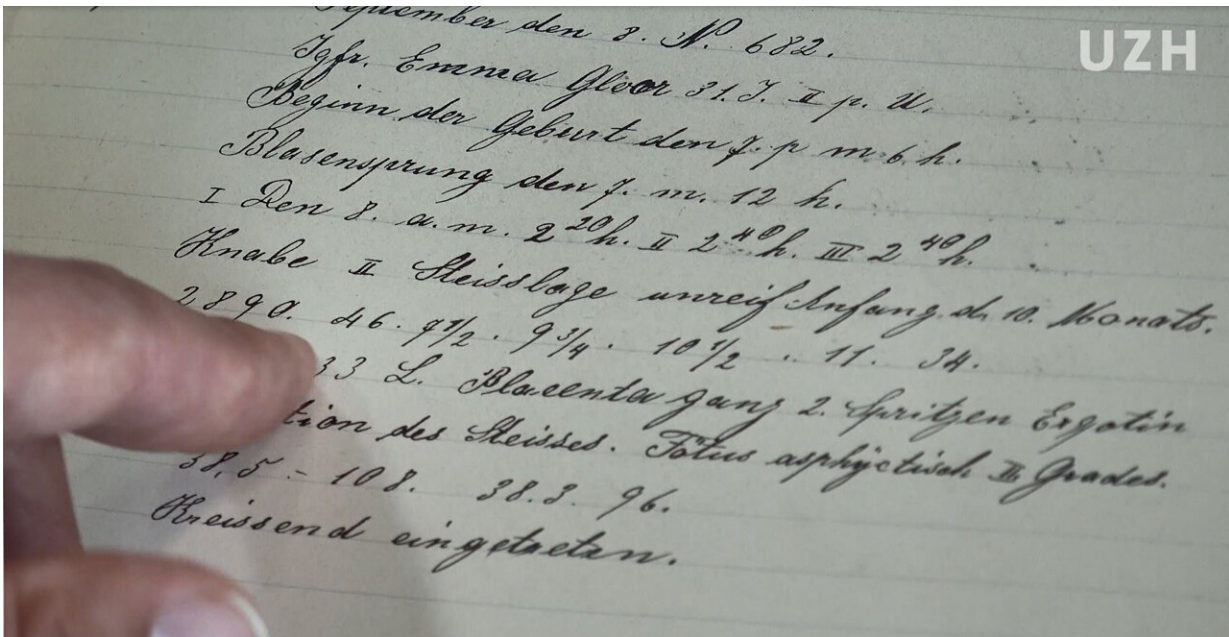 September den 8. N. 682.
Igfr. Emma Gloor 31. J. II p. U.
Beginn der Geburt den 7. p m 6 h.
Blasensprung den 7. m. 12 h.
I Den 8. a. m. 2 20 h. II 2 40 h. III 2 40 h.
Knabe II Steisslage unreif Anfang d. 10. Monats.
2890. 46. 7 1/2. 9 3/4. 10 1/2. 11. 34.
33 L. Placenta ganz 2. Spritzen Ergotin
tion des Steisses. Fötus asphyctisch II Grades.
38,5 - 108. 38.3. 96.
Kreissend eingetreten.
UZH